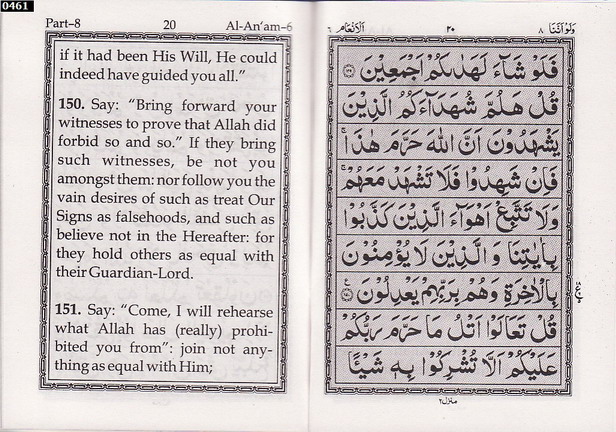 0461
Part–8 20 Al-An’am–6
if it had been His Will, He could
indeed have guided you all.”
150. Say: “Bring forward your
witnesses to prove that Allah did
forbid so and so.” If they bring
such witnesses, be not you
amongst them: nor follow you the
vain desires of such as treat Our
Signs as falsehoods, and such as
believe not in the Hereafter: for
they hold others as equal with
their Guardian-Lord.
151. Say: “Come, I will rehearse
what Allah has (really) prohi-
bited you from”: join not any-
thing as equal with Him;
ولو اننا ٨ ٢٠ الانعام ٦
فَلَوْ شَآءَ لَهَدٰىكُمْ اَجْمَعِيْنَ
قُلْ هَلُمَّ شُهَدَآءَكُمُ الَّذِيْنَ
يَشْهَدُوْنَ اَنَّ اللّٰهَ حَرَّمَ هٰذَا ۚ
فَاِنْ شَهِدُوْا فَلَا تَشْهَدْ مَعَهُمْ ۚ
وَلَا تَتَّبِعْ اَهْوَآءَ الَّذِيْنَ كَذَّبُوْا
بِاٰيٰتِنَا وَ الَّذِيْنَ لَا يُؤْمِنُوْنَ
بِالْاٰخِرَةِ وَهُمْ بِرَبِّهِمْ يَعْدِلُوْنَ
قُلْ تَعَالَوْا اَتْلُ مَا حَرَّمَ رَبُّكُمْ
عَلَيْكُمْ اَلَّا تُشْرِكُوْا بِهٖ شَيْـًٔا
منزل ٢